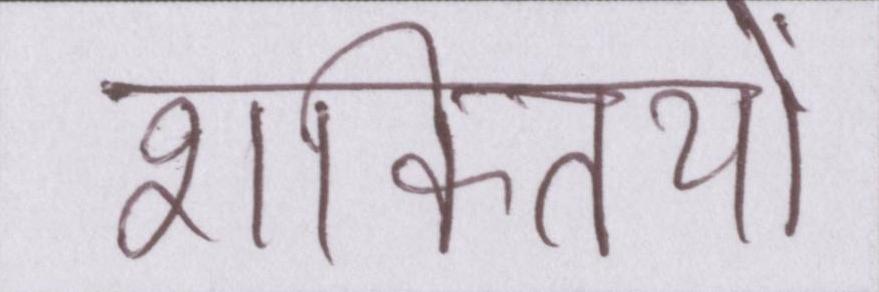 शक्तियों